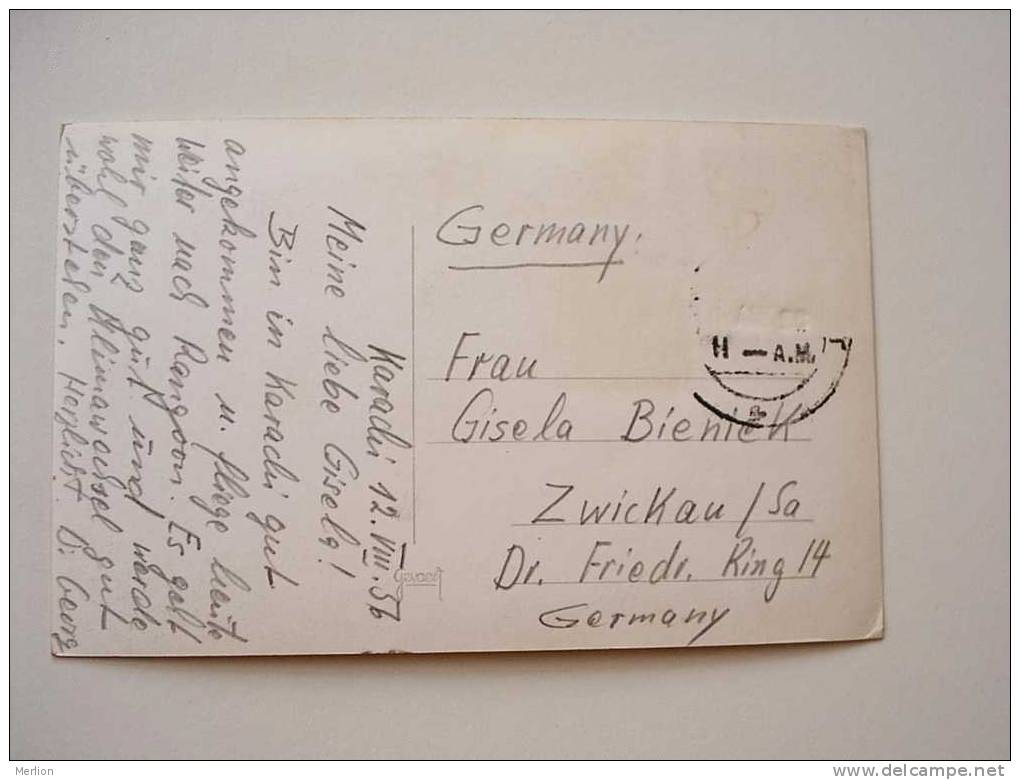 Karachi 12. VIII. 56
Meine liebe Gisela!
Bin in Karachi gut
angekommen u. fliege heute
weiter nach Rangoon. Es geht
mir ganz gut und werde
wohl den Klimawechsel gut
überstehen. Herzlichst D. Georg
Gevaert
Germany.
Frau
Gisela Bieniek
Zwickau / Sa
Dr. Friedr. Ring 14
Germany
11 — A.M.
Merlion
www.delcampe.net